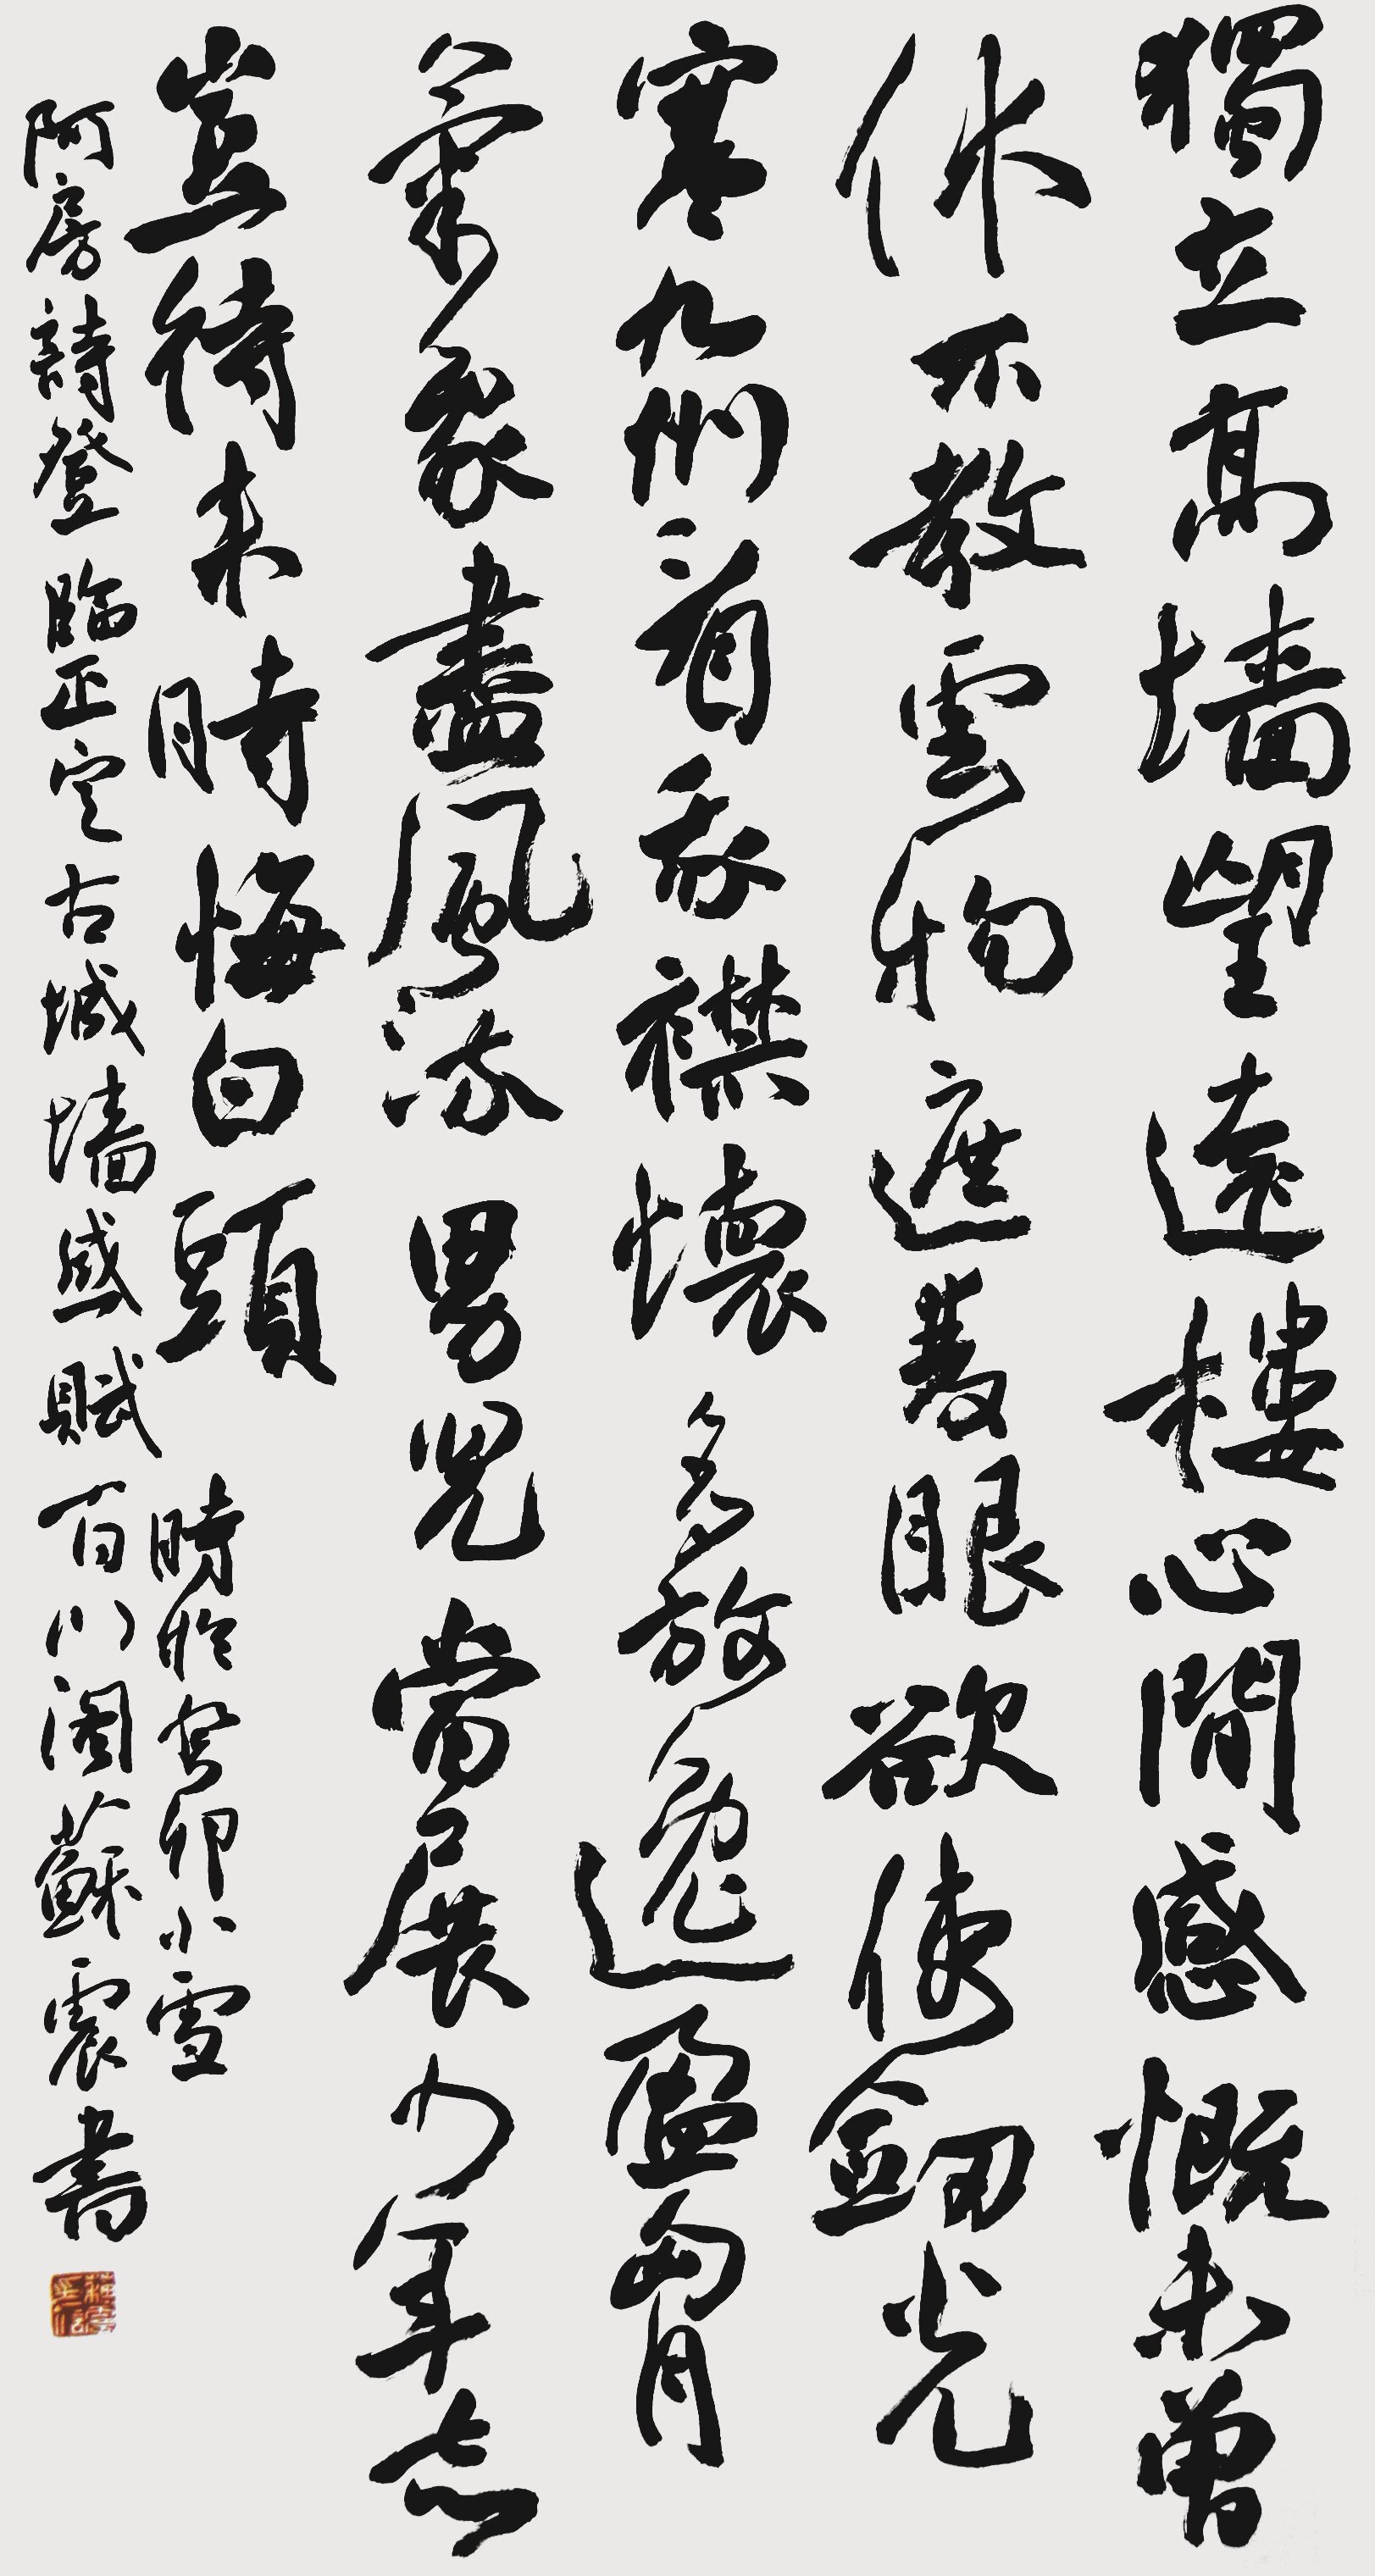 獨立高墙望遠樓心間感慨未曾
休不教雲物遮雙眼欲使劍光
寒九州看我襟懷多放逸盈胷
氣象盡風流男兒當展少年志
豈待来時悔白頭 時於癸卯小雪
阿房詩登臨正定古城墙感賦百川阁蘇震書